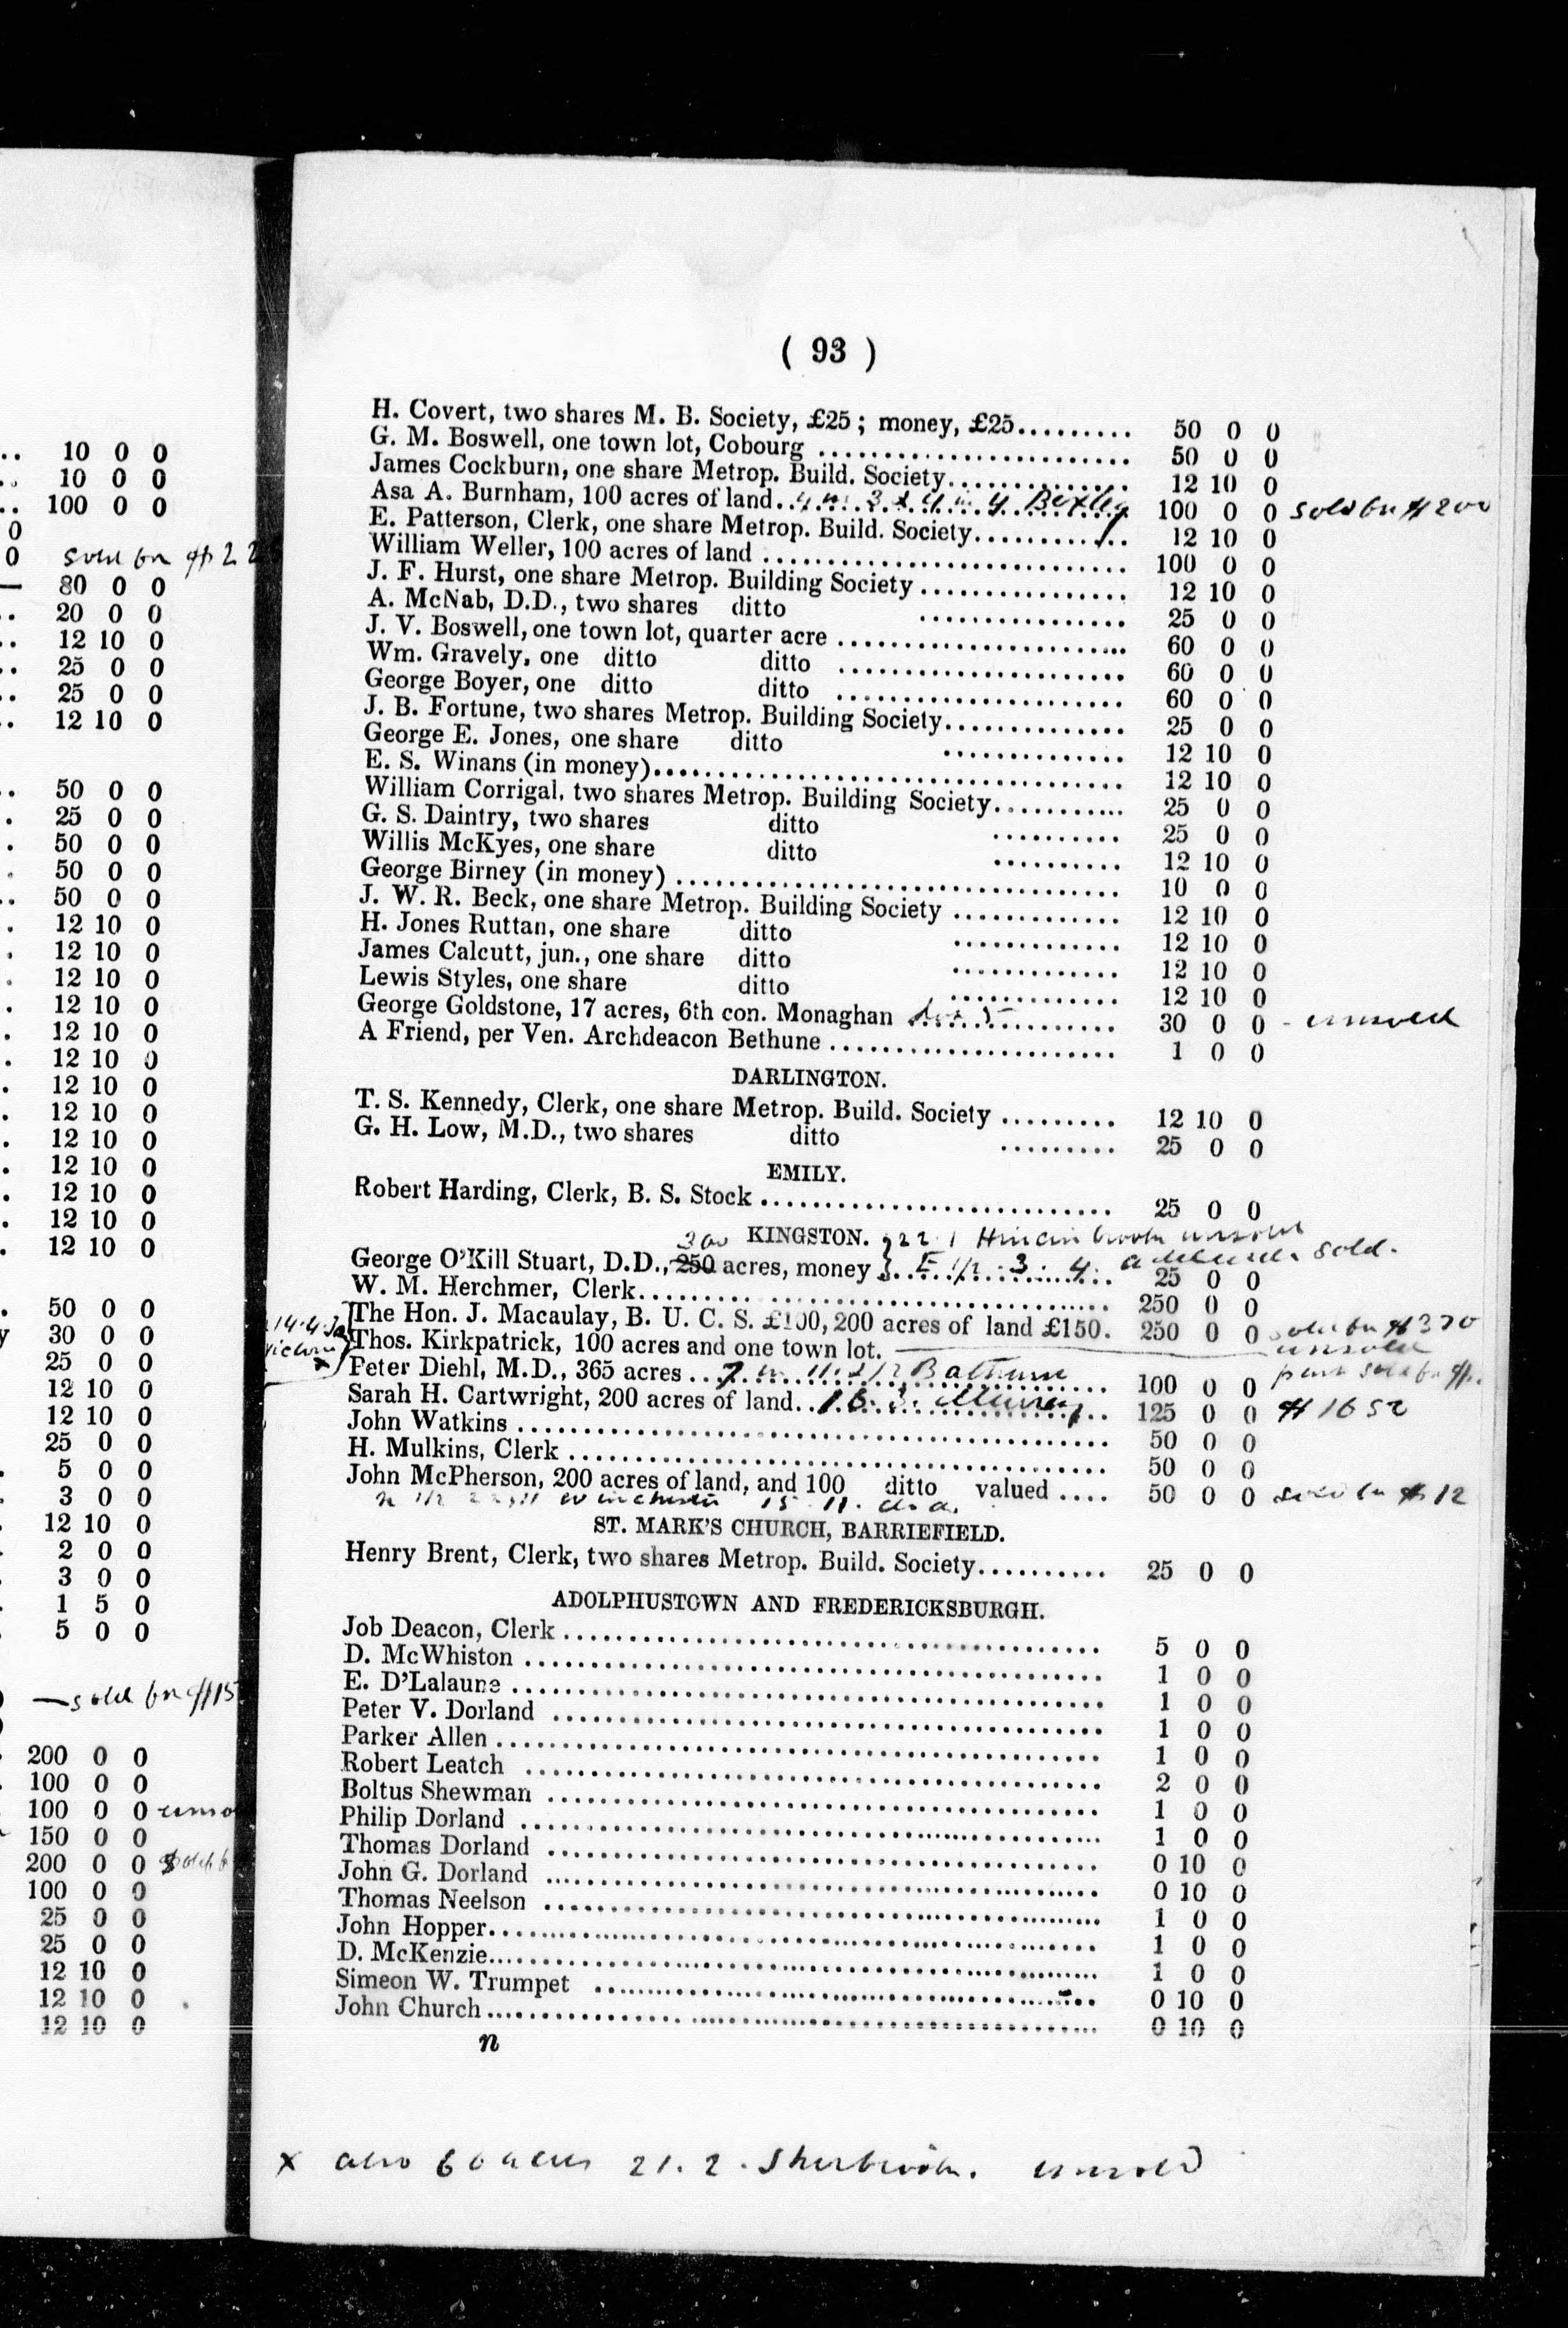 10 0 0
10 0 0
100 0 0
0
0 sold for
80 0 0
20 0 0
12 10 0
25 0 0
25 0 0
12 10 0
50 0 0
25 0 0
50 0 0
50 0 0
50 0 0
12 10 0
12 10 0
12 10 0
12 10 0
12 10 0
12 10 0
12 10 0
12 10 0
12 10 0
12 10 0
12 10 0
12 10 0
12 10 0
50 0 0
30 0 0
25 0 0
12 10 0
12 10 0
25 0 0
5 0 0
3 0 0
12 10 0
2 0 0
3 0 0
1 5 0
5 0 0
— sold for $15
200 0 0
100 0 0
100 0 0
150 0 0
200 0 0
100 0 0
25 0 0
25 0 0
12 10 0
12 10 0
12 10 0
( 93 )
H. Covert, two shares M. B. Society, £25; money, £25......... 50 0 0
G. M. Boswell, one town lot, Cobourg ........................ 50 0 0
James Cockburn, one share Metrop. Build. Society.............. 12 10 0
Asa A. Burnham, 100 acres of land.. 4 Bexley 100 0 0 sold for $200
E. Patterson, Clerk, one share Metrop. Build. Society............ 12 10 0
William Weller, 100 acres of land ............................ 100 0 0
J. F. Hurst, one share Metrop. Building Society................ 12 10 0
A. McNab, D.D., two shares ditto ................ 25 0 0
J. V. Boswell, one town lot, quarter acre ...................... 60 0 0
Wm. Gravely, one ditto ditto ...................... 60 0 0
George Boyer, one ditto ditto ...................... 60 0 0
J. B. Fortune, two shares Metrop. Building Society.............. 25 0 0
George E. Jones, one share ditto .............. 12 10 0
E. S. Winans (in money).................................... 12 10 0
William Corrigal, two shares Metrop. Building Society........... 25 0 0
G. S. Daintry, two shares ditto .......... 25 0 0
Willis McKyes, one share ditto .......... 12 10 0
George Birney (in money) .................................. 10 0 0
J. W. R. Beck, one share Metrop. Building Society ............. 12 10 0
H. Jones Ruttan, one share ditto ............. 12 10 0
James Calcutt, jun., one share ditto ............. 12 10 0
Lewis Styles, one share ditto ............. 12 10 0
George Goldstone, 17 acres, 6th con. Monaghan ................ 30 0 0 - unsold
A Friend, per Ven. Archdeacon Bethune ...................... 1 0 0
DARLINGTON.
T. S. Kennedy, Clerk, one share Metrop. Build. Society ......... 12 10 0
G. H. Low, M.D., two shares ditto ......... 25 0 0
EMILY.
Robert Harding, Clerk, B. S. Stock ........................... 25 0 0
300 KINGSTON. 22 1 Hinchinbrooke unsold
George O'Kill Stuart, D.D., 250 acres, money E 1/2 3 4 sold. 25 0 0
W. M. Herchmer, Clerk.................................... 250 0 0
The Hon. J. Macaulay, B. U. C. S. £100, 200 acres of land £150. 250 0 0 sold for $370
Thos. Kirkpatrick, 100 acres and one town lot. unsold
Peter Diehl, M.D., 365 acres ... 100 0 0 part sold for
Sarah H. Cartwright, 200 acres of land.. Murray 125 0 0
John Watkins ............................................ 50 0 0
H. Mulkins, Clerk ........................................ 50 0 0
John McPherson, 200 acres of land, and 100 ditto valued .... 50 0 0 sold for $12
Winchester 15 11
ST. MARK'S CHURCH, BARRIEFIELD.
Henry Brent, Clerk, two shares Metrop. Build. Society.......... 25 0 0
ADOLPHUSTOWN AND FREDERICKSBURGH.
Job Deacon, Clerk ........................................ 5 0 0
D. McWhiston ............................................ 1 0 0
E. D'Lalaune ............................................. 1 0 0
Peter V. Dorland ......................................... 1 0 0
Parker Allen .............................................. 1 0 0
Robert Leatch ............................................ 2 0 0
Boltus Shewman .......................................... 1 0 0
Philip Dorland ............................................ 1 0 0
Thomas Dorland .......................................... 0 10 0
John G. Dorland .......................................... 0 10 0
Thomas Neelson .......................................... 1 0 0
John Hopper.............................................. 1 0 0
D. McKenzie.............................................. 1 0 0
Simeon W. Trumpet ....................................... 0 10 0
John Church.............................................. 0 10 0
n
x also 60 acres 21. 2. Sherbrooke. unsold